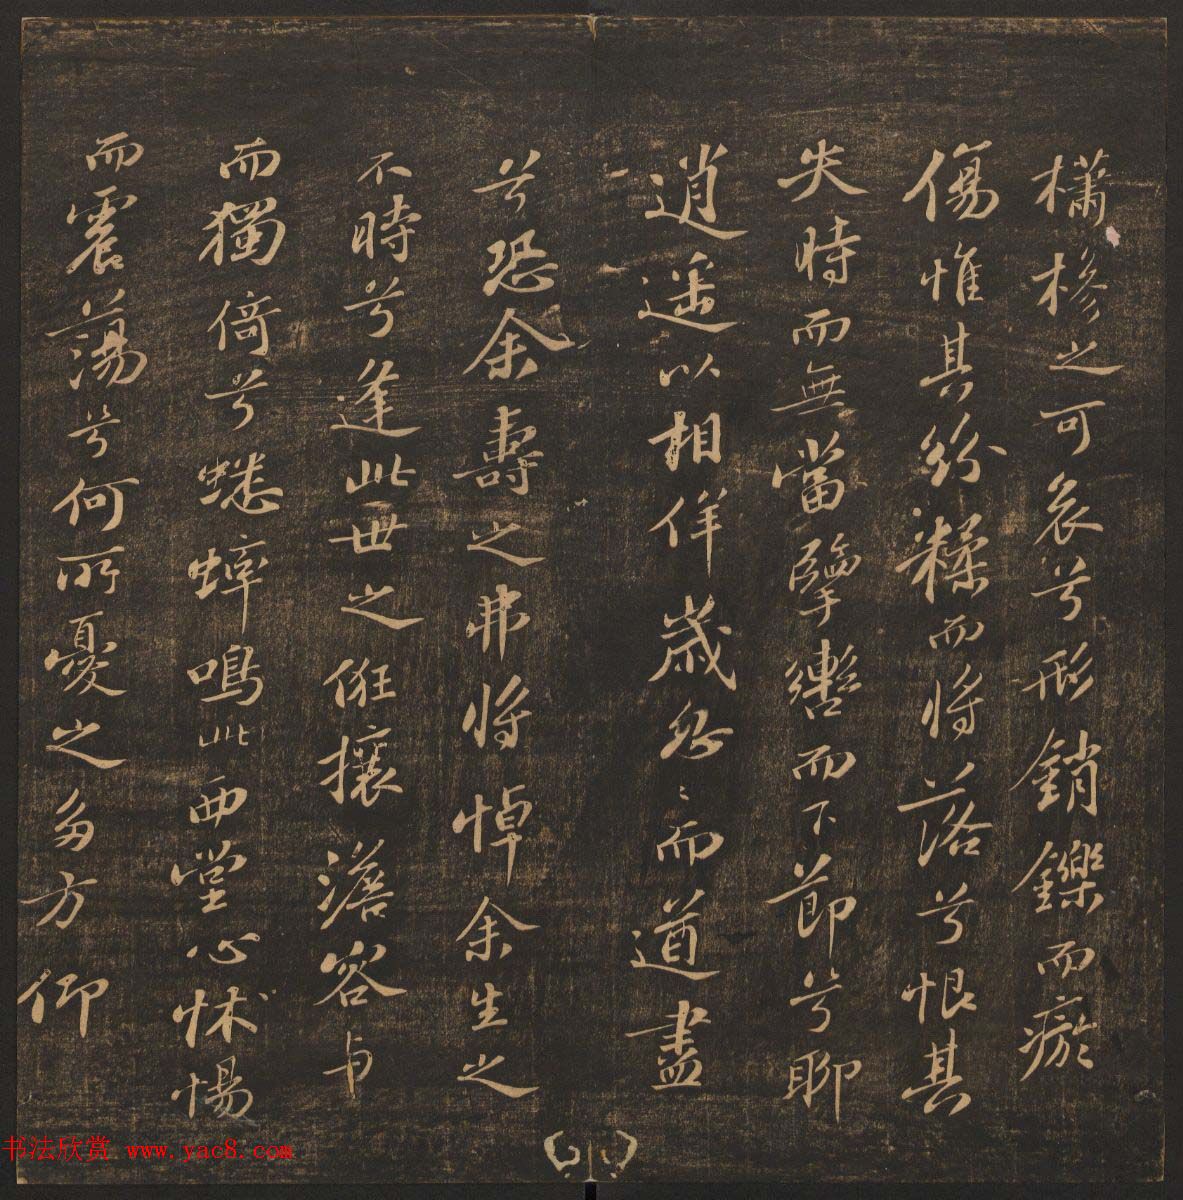 櫹槮之可哀兮形銷鑠而瘀
傷惟其紛糅而將落兮恨其
失時而無當擥轡而下節兮聊
逍遥以相佯歲忽〻而遒盡
兮恐余壽之弗將悼余生之
不時兮逢此世之俇攘澹容与
而獨倚兮蟋蟀鳴此西堂心怵惕
而震蕩兮何所憂之多方仰
书法欣赏 www.yac8.com